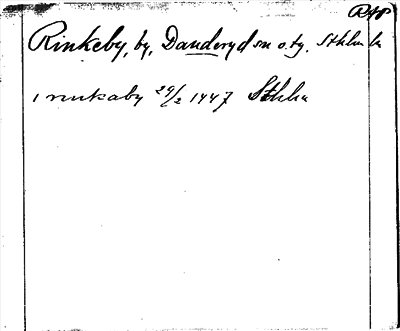 Rap
Rinkeby, by, Danderyd sn o. hg. Sthlm ln
i rinkaby 29/2 1447 Sthlm